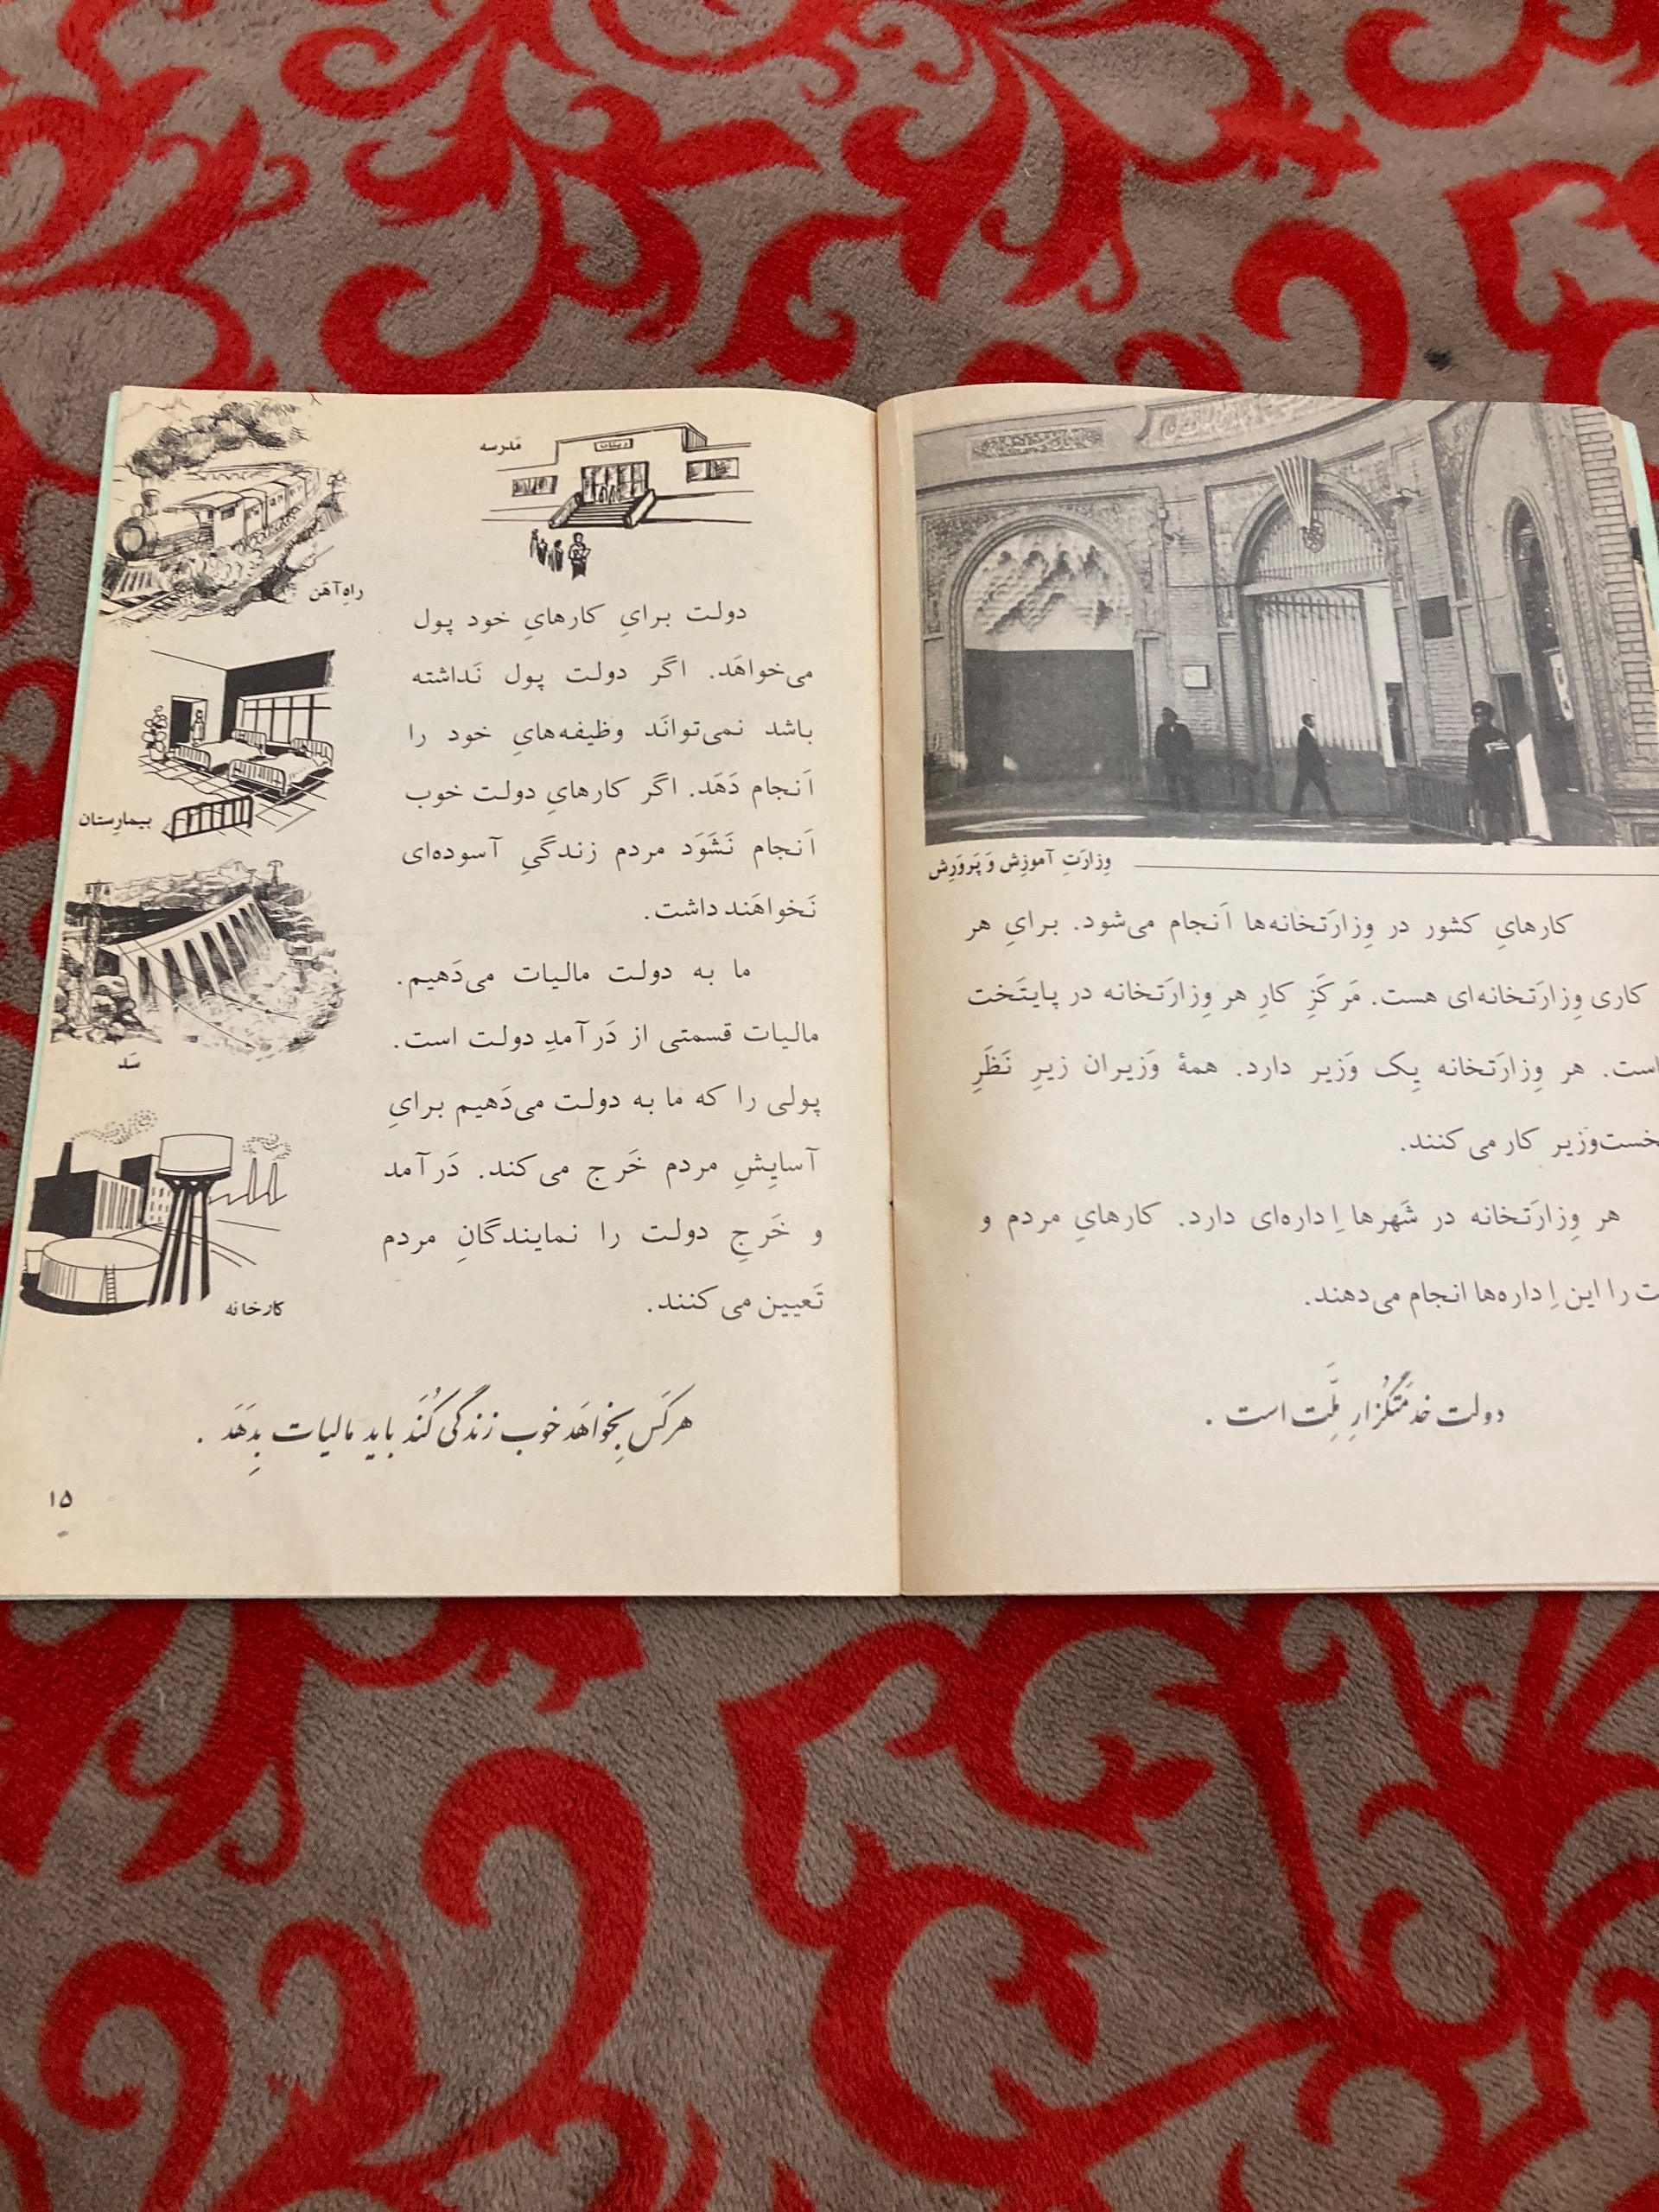 وِزارَتِ آموزِش وَ پَروَرِش
کارهایِ کشور در وِزارَتخانه‌ها اَنجام می‌شود. برایِ هر
کاری وِزارَتخانه‌ای هست. مَرکَزِ کارِ هر وِزارَتخانه در پایتَخت
است. هر وِزارَتخانه یِک وَزیر دارد. همهٔ وَزیران زیرِ نَظَرِ
خست‌وَزیر کار می‌کنند.
هر وِزارَتخانه در شَهرها اِداره‌ای دارد. کارهایِ مردم و
ت را این اِداره‌ها انجام می‌دهند.
دولت خدمَتگُزارِ مِلَّت است.
مَدرسه
دبستان
راهِ‌آهَن
بیمارِستان
سَد
کارخانه
دولت برایِ کارهایِ خود پول
می‌خواهَد. اگر دولت پول نَداشته
باشد نمی‌توانَد وظیفه‌هایِ خود را
اَنجام دَهَد. اگر کارهایِ دولت خوب
اَنجام نَشَوَد مردم زندگیِ آسوده‌ای
نَخواهَند داشت.
ما به دولت مالیات می‌دَهیم.
مالیات قسمتی از دَرآمدِ دولت است.
پولی را که ما به دولت می‌دَهیم برایِ
آسایِشِ مردم خَرج می‌کند. دَرآمد
و خَرجِ دولت را نمایندگانِ مردم
تَعیین می‌کنند.
هرکَس بِخواهَد خوب زندگی کُنَد باید مالیات بِدَهَد.
۱۵